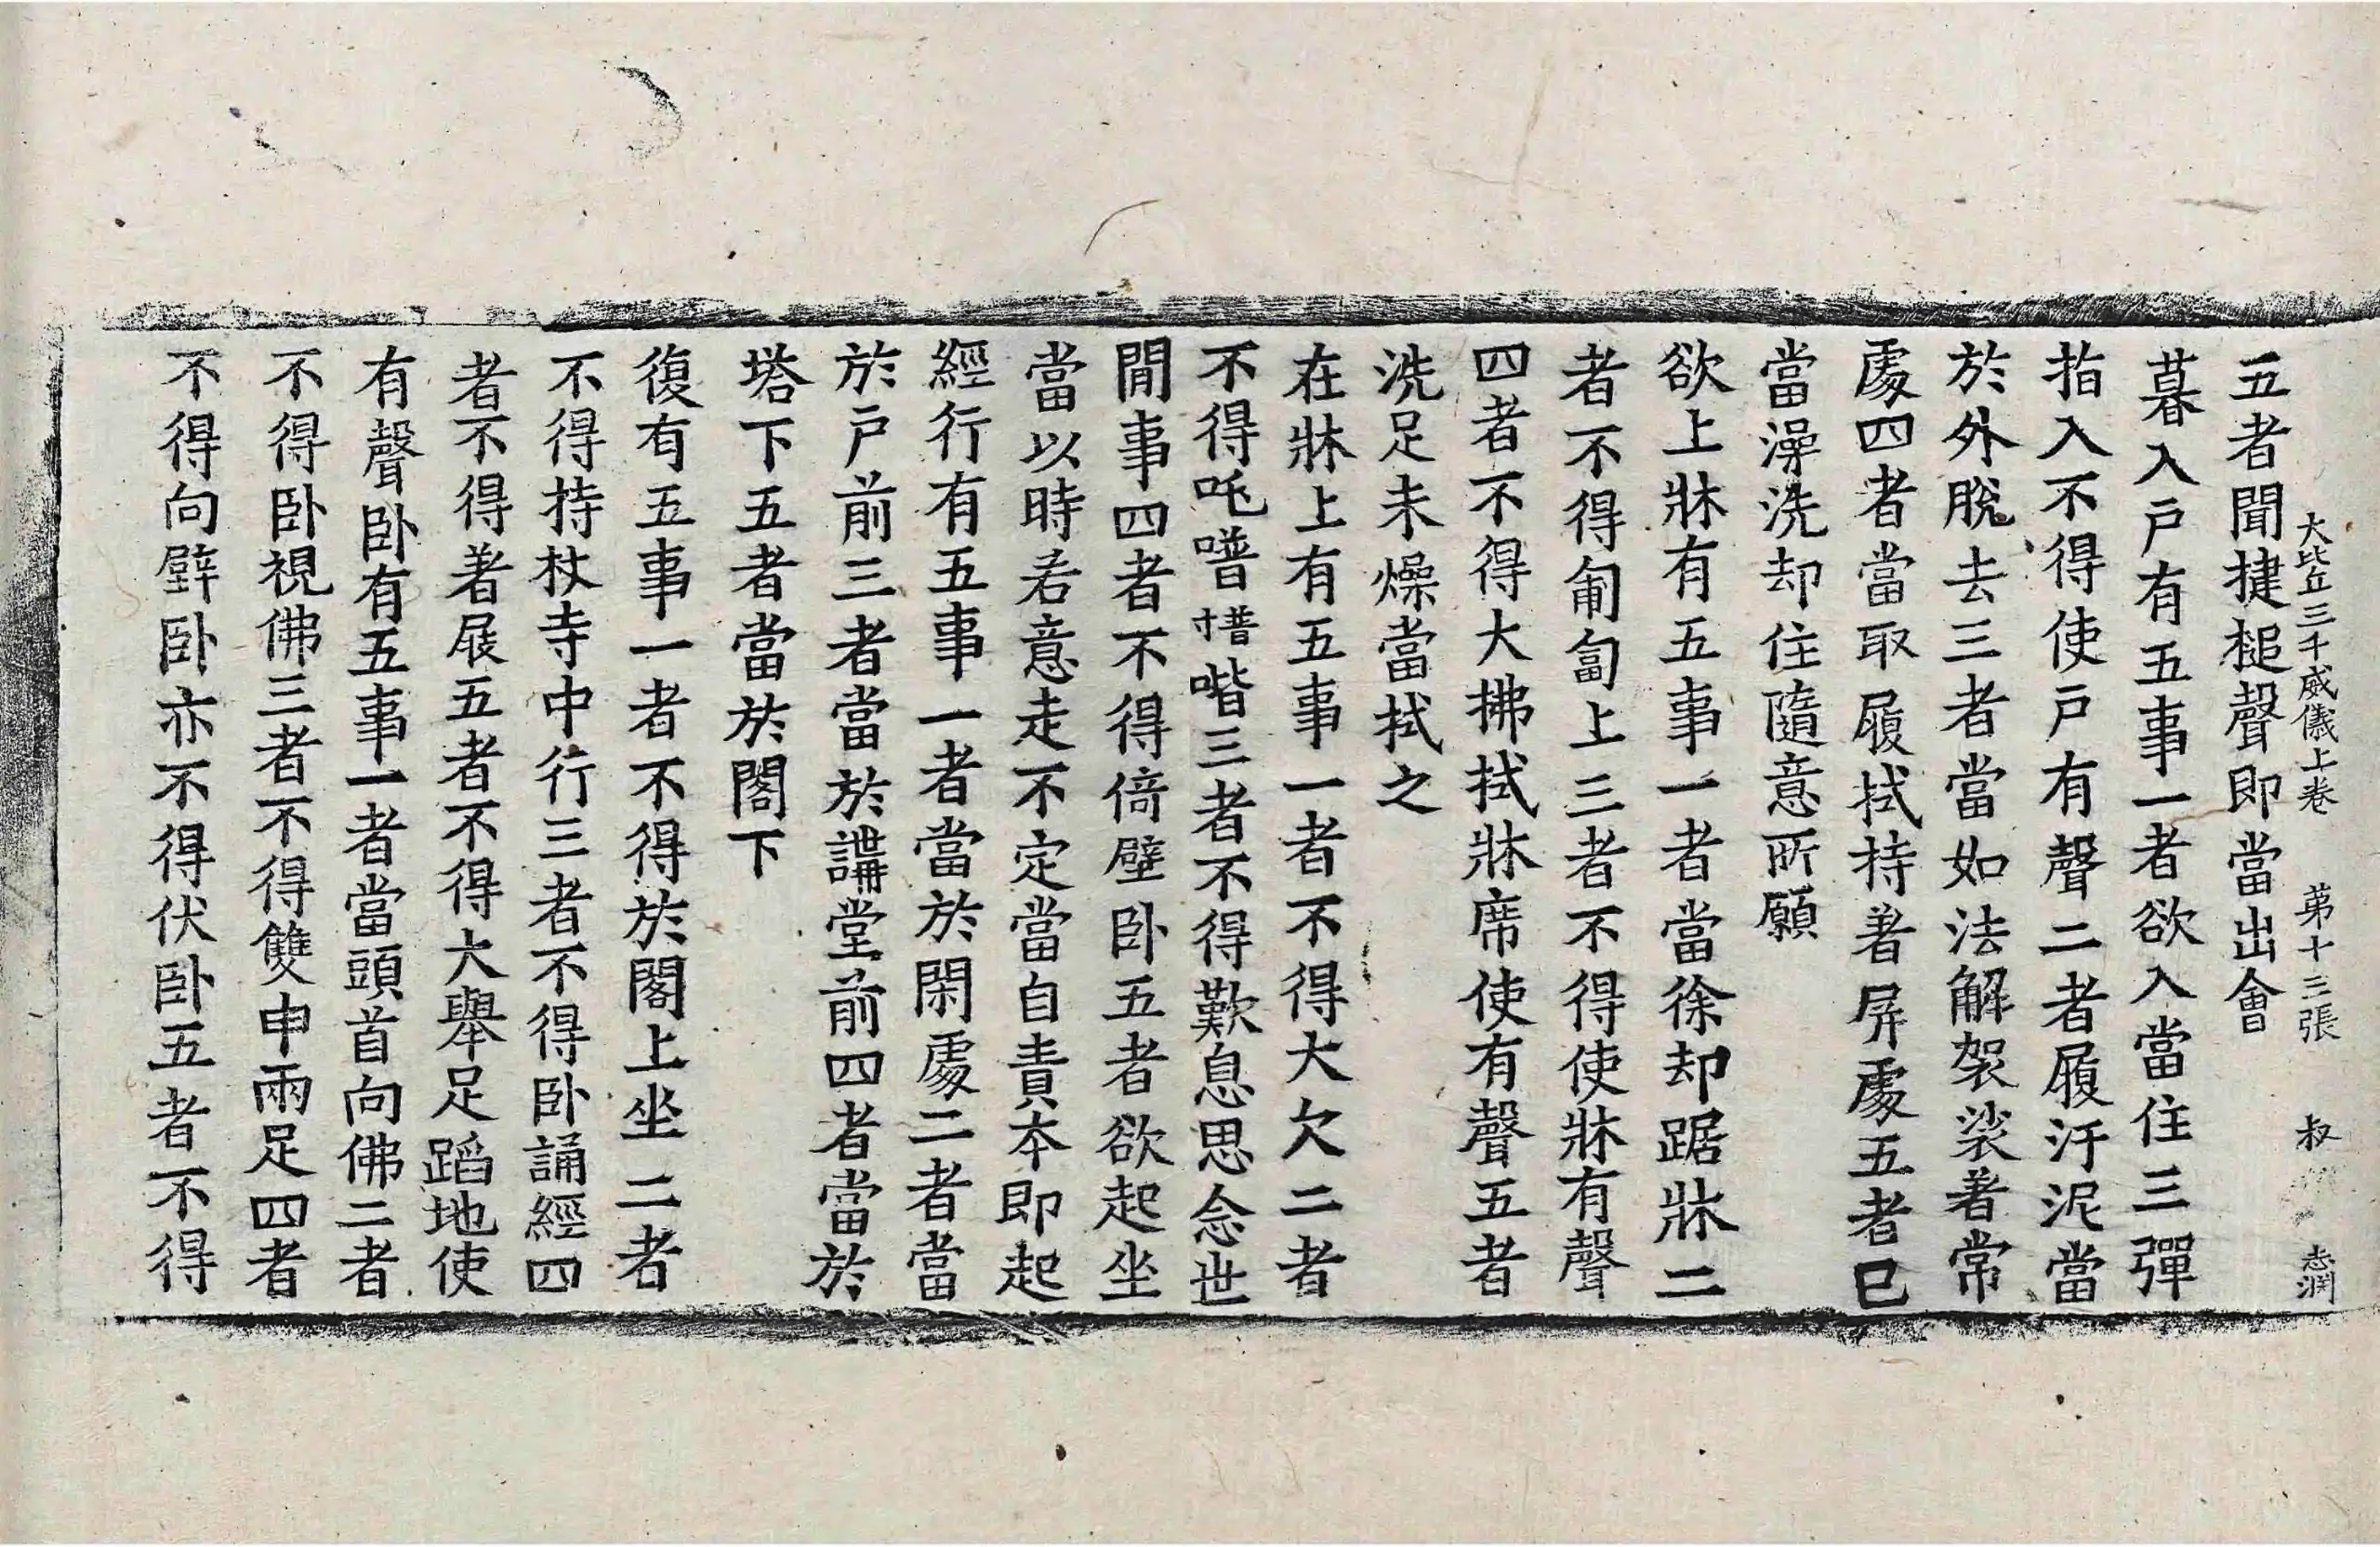 大比丘三千威儀上卷 第十三張 叔 志潤
五者聞揵槌聲即當出會
暮入戸有五事一者欲入當住三彈
指入不得使戸有聲二者履汙泥當
於外脫去三者當如法解袈裟著常
處四者當取履拭持著屏處五者已
當澡洗却住隨意所願
欲上牀有五事一者當徐却踞牀二
者不得匍匐上三者不得使牀有聲
四者不得大拂拭牀席使有聲五者
洗足未燥當拭之
在牀上有五事一者不得大欠二者
不得吒噆喈三者不得歎息思念世
間事四者不得倚壁卧五者欲起坐
當以時若意走不定當自責本即起
經行有五事一者當於閑處二者當
於戸前三者當於講堂前四者當於
塔下五者當於閣下
復有五事一者不得於閣上坐二者
不得持杖寺中行三者不得卧誦經四
者不得著屐五者不得大舉足蹈地使
有聲卧有五事一者當頭首向佛二者
不得卧視佛三者不得雙申兩足四者
不得向壁卧亦不得伏卧五者不得